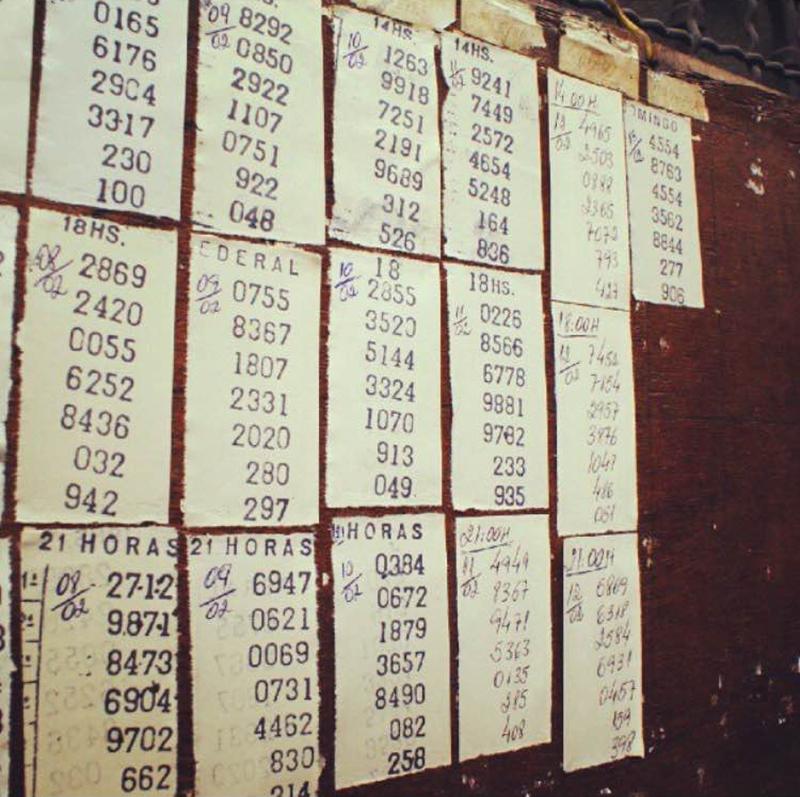 0165
6176
2904
3317
230
100
09/02 8292
0850
2922
1107
0751
922
048
14HS.
10/02 1263
9918
7251
2191
9689
312
526
14HS.
11/02 9241
7449
2572
4654
5248
164
836
14:00H
12/02 4965
2503
2365
7072
793
427
OMINGO
4554
8763
4554
3562
8844
277
906
18HS.
08/02 2869
2420
0055
6252
8436
032
942
EDERAL
09/02 0755
8367
1807
2331
2020
280
297
18
10/02 2855
3520
5144
3324
1070
913
049
18HS.
11/02 0226
8566
6778
9881
9782
233
935
18:00H
12/02 7452
7154
2957
3976
1047
486
051
21 HORAS
08/02 2712
9871
8473
6904
9702
662
21 HORAS
09/02 6947
0621
0069
0731
4462
830
214
HORAS
10/02 0384
0672
1879
3657
8490
082
258
21:00H
11/02 4949
8367
9471
5363
0135
285
408
21:00H
12/02 6869
6318
2584
6931
0457
159
398